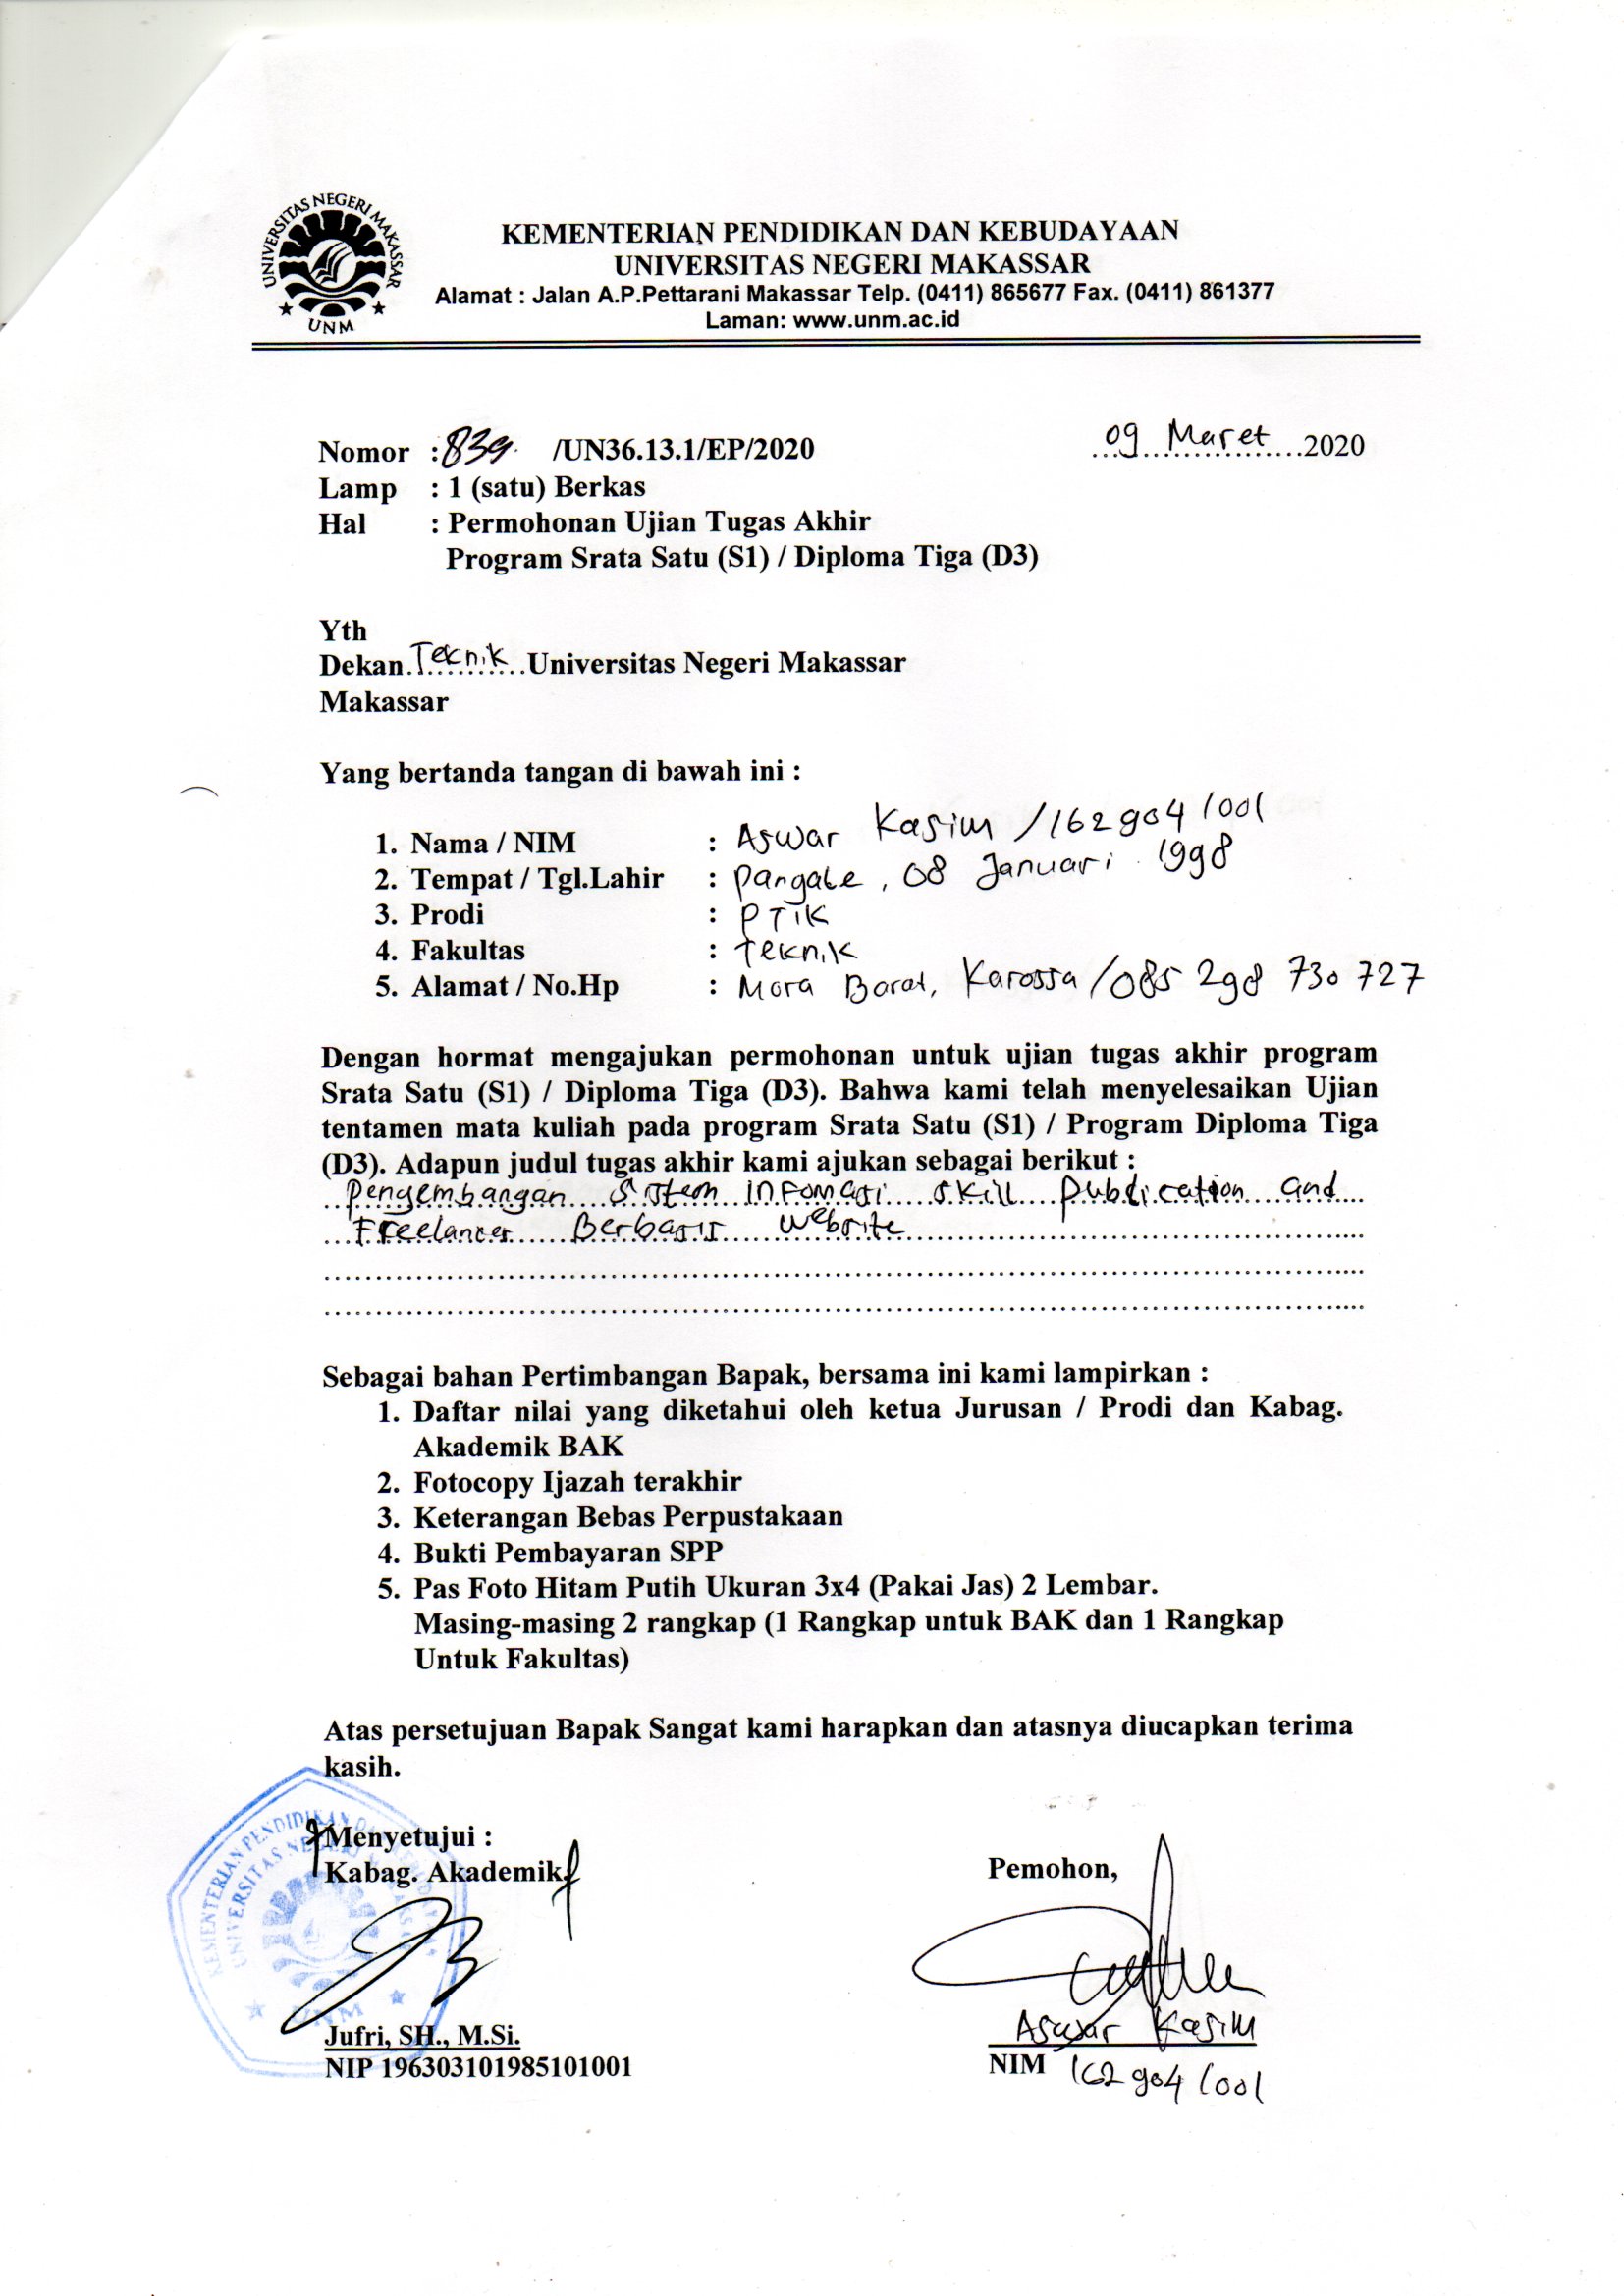 UNIVERSITAS NEGERI MAKASSAR
UNM
KEMENTERIAN PENDIDIKAN DAN KEBUDAYAAN
UNIVERSITAS NEGERI MAKASSAR
Alamat : Jalan A.P.Pettarani Makassar Telp. (0411) 865677 Fax. (0411) 861377
Laman: www.unm.ac.id
Nomor : 839 /UN36.13.1/EP/2020 09 Maret 2020
Lamp : 1 (satu) Berkas
Hal : Permohonan Ujian Tugas Akhir
Program Srata Satu (S1) / Diploma Tiga (D3)
Yth
Dekan Teknik Universitas Negeri Makassar
Makassar
Yang bertanda tangan di bawah ini :
1. Nama / NIM : Aswar Kasim / 1629041001
2. Tempat / Tgl.Lahir : Pangale, 08 Januari 1998
3. Prodi : PTIK
4. Fakultas : Teknik
5. Alamat / No.Hp : Mora Barat, Karossa / 085 298 730 727
Dengan hormat mengajukan permohonan untuk ujian tugas akhir program
Srata Satu (S1) / Diploma Tiga (D3). Bahwa kami telah menyelesaikan Ujian
tentamen mata kuliah pada program Srata Satu (S1) / Program Diploma Tiga
(D3). Adapun judul tugas akhir kami ajukan sebagai berikut :
Pengembangan Sistem Infomasi Skill Publication and
Freelancer Berbasis Website
Sebagai bahan Pertimbangan Bapak, bersama ini kami lampirkan :
1. Daftar nilai yang diketahui oleh ketua Jurusan / Prodi dan Kabag.
Akademik BAK
2. Fotocopy Ijazah terakhir
3. Keterangan Bebas Perpustakaan
4. Bukti Pembayaran SPP
5. Pas Foto Hitam Putih Ukuran 3x4 (Pakai Jas) 2 Lembar.
Masing-masing 2 rangkap (1 Rangkap untuk BAK dan 1 Rangkap
Untuk Fakultas)
Atas persetujuan Bapak Sangat kami harapkan dan atasnya diucapkan terima
kasih.
Menyetujui :
Kabag. Akademik
Pemohon,
KEMENTERIAN PENDIDIKAN
UNIVERSITAS NEGERI
UNM
Jufri, SH., M.Si.
NIP 196303101985101001
Aswar Kasim
NIM 1629041001